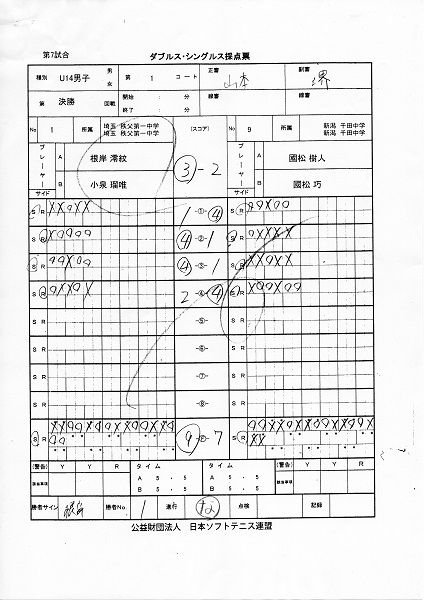 第7試合 ダブルス・シングルス採点票
種別 U14男子 男 女 第 1 コート 正審 山本 副審 堺
第 決勝 回戦 開始 : 分 終了 : 分 線審 線審
No 1 所属 埼玉 秩父第一中学 埼玉 秩父第一中学 (スコア) No 9 所属 新潟 千田中学 新潟 千田中学
プレーヤー A 根岸 澪紋 ③-2 プレーヤー A 國松 樹人
B 小泉 瑠唯 B 國松 巧
サイド サイド
S R XXOXX 1 -①- ④ S R OOXOO
S R XOOOO ④ -②- 1 S R OXXXX
S R OOXOO ④ -③- 1 S R XXOXX
S R OXXOX 2 -④- ④ S R XOOXOO
S R -⑤- S R
S R -⑥- S R
S R -⑦- S R
S R -⑧- S R
S R ⑨ -Ⓕ- 7 S R
(警告) Y Y R タイム タイム (警告) Y Y R
該当事項 A 5.5 A 5.5 該当事項
B 5.5 B 5.5
勝者サイン 根岸 勝者No. 1 進行 な 点検 記録
公益財団法人 日本ソフトテニス連盟